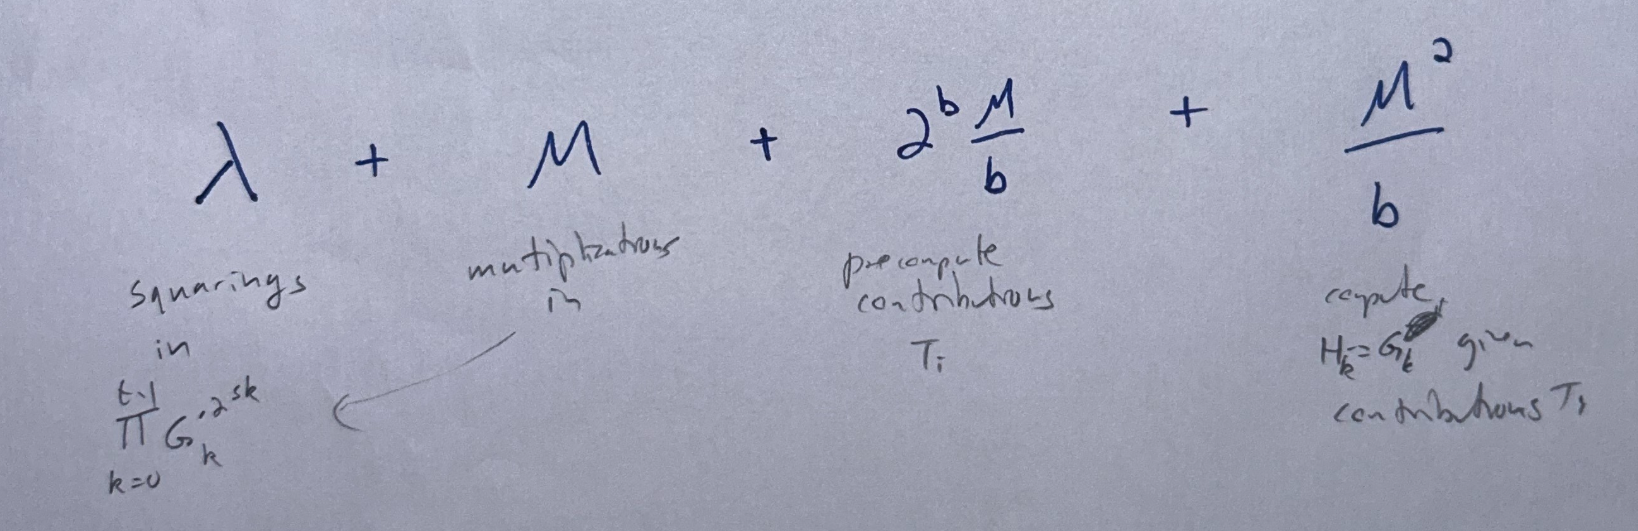 λ + M + 2^b M/b + M^2/b
squarings
in
t-1
∏ G_k^{·2^{sk}}
k=0
mutiplications
in
precompute
contributions
T_i
compute
H_k = G_k given
contributions T_i